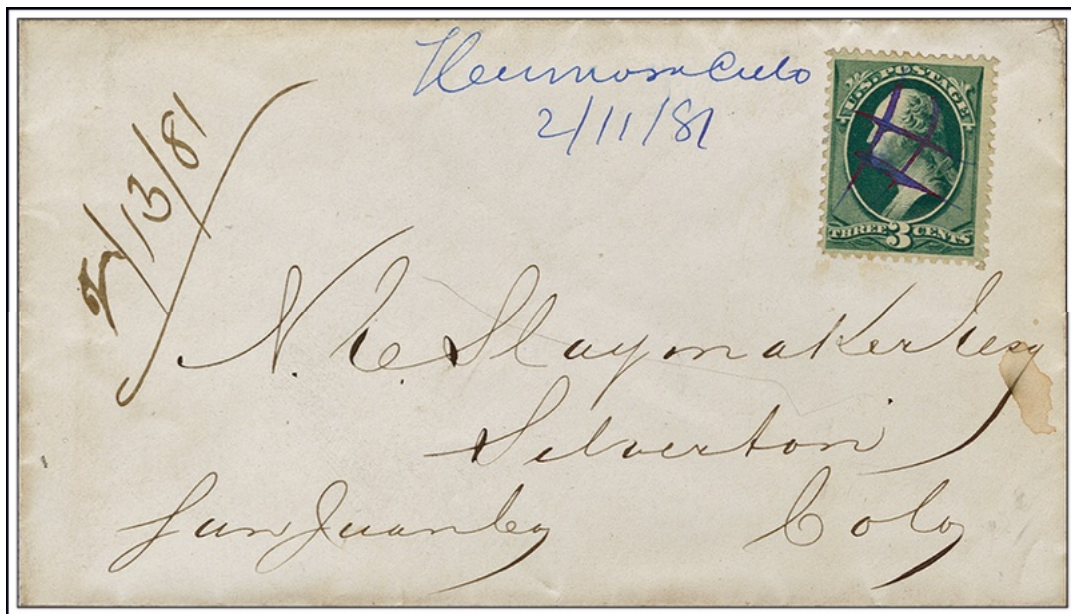 Hermosa Colo
2/11/81
2/13/81
U.S. POSTAGE
THREE 3 CENTS
N. C. Slaymaker Esq
Silverton
San Juan Co
Colo